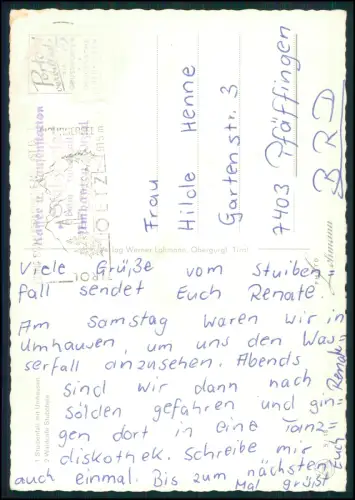 Porto
Kaffee u. Jausenstation
Umhausen, Tirol
Frau
Hilde Henne
Gartenstr. 3
7403 Pfäffingen
BRD
Verlag Werner Lohmann, Obergurgl, Tirol
Viele Grüße vom Stuiben=
fall sendet Euch Renate.
Am Samstag waren wir in
Umhausen, um uns den Was=
serfall anzusehen. Abends
sind wir dann nach
Sölden gefahren und gin=
gen dort in eine Tanz=
diskothek. Schreibe mir
auch einmal. Bis zum nächsten
Mal grüßt
Euch Renate
1 Stuibenfall mit Umhausen